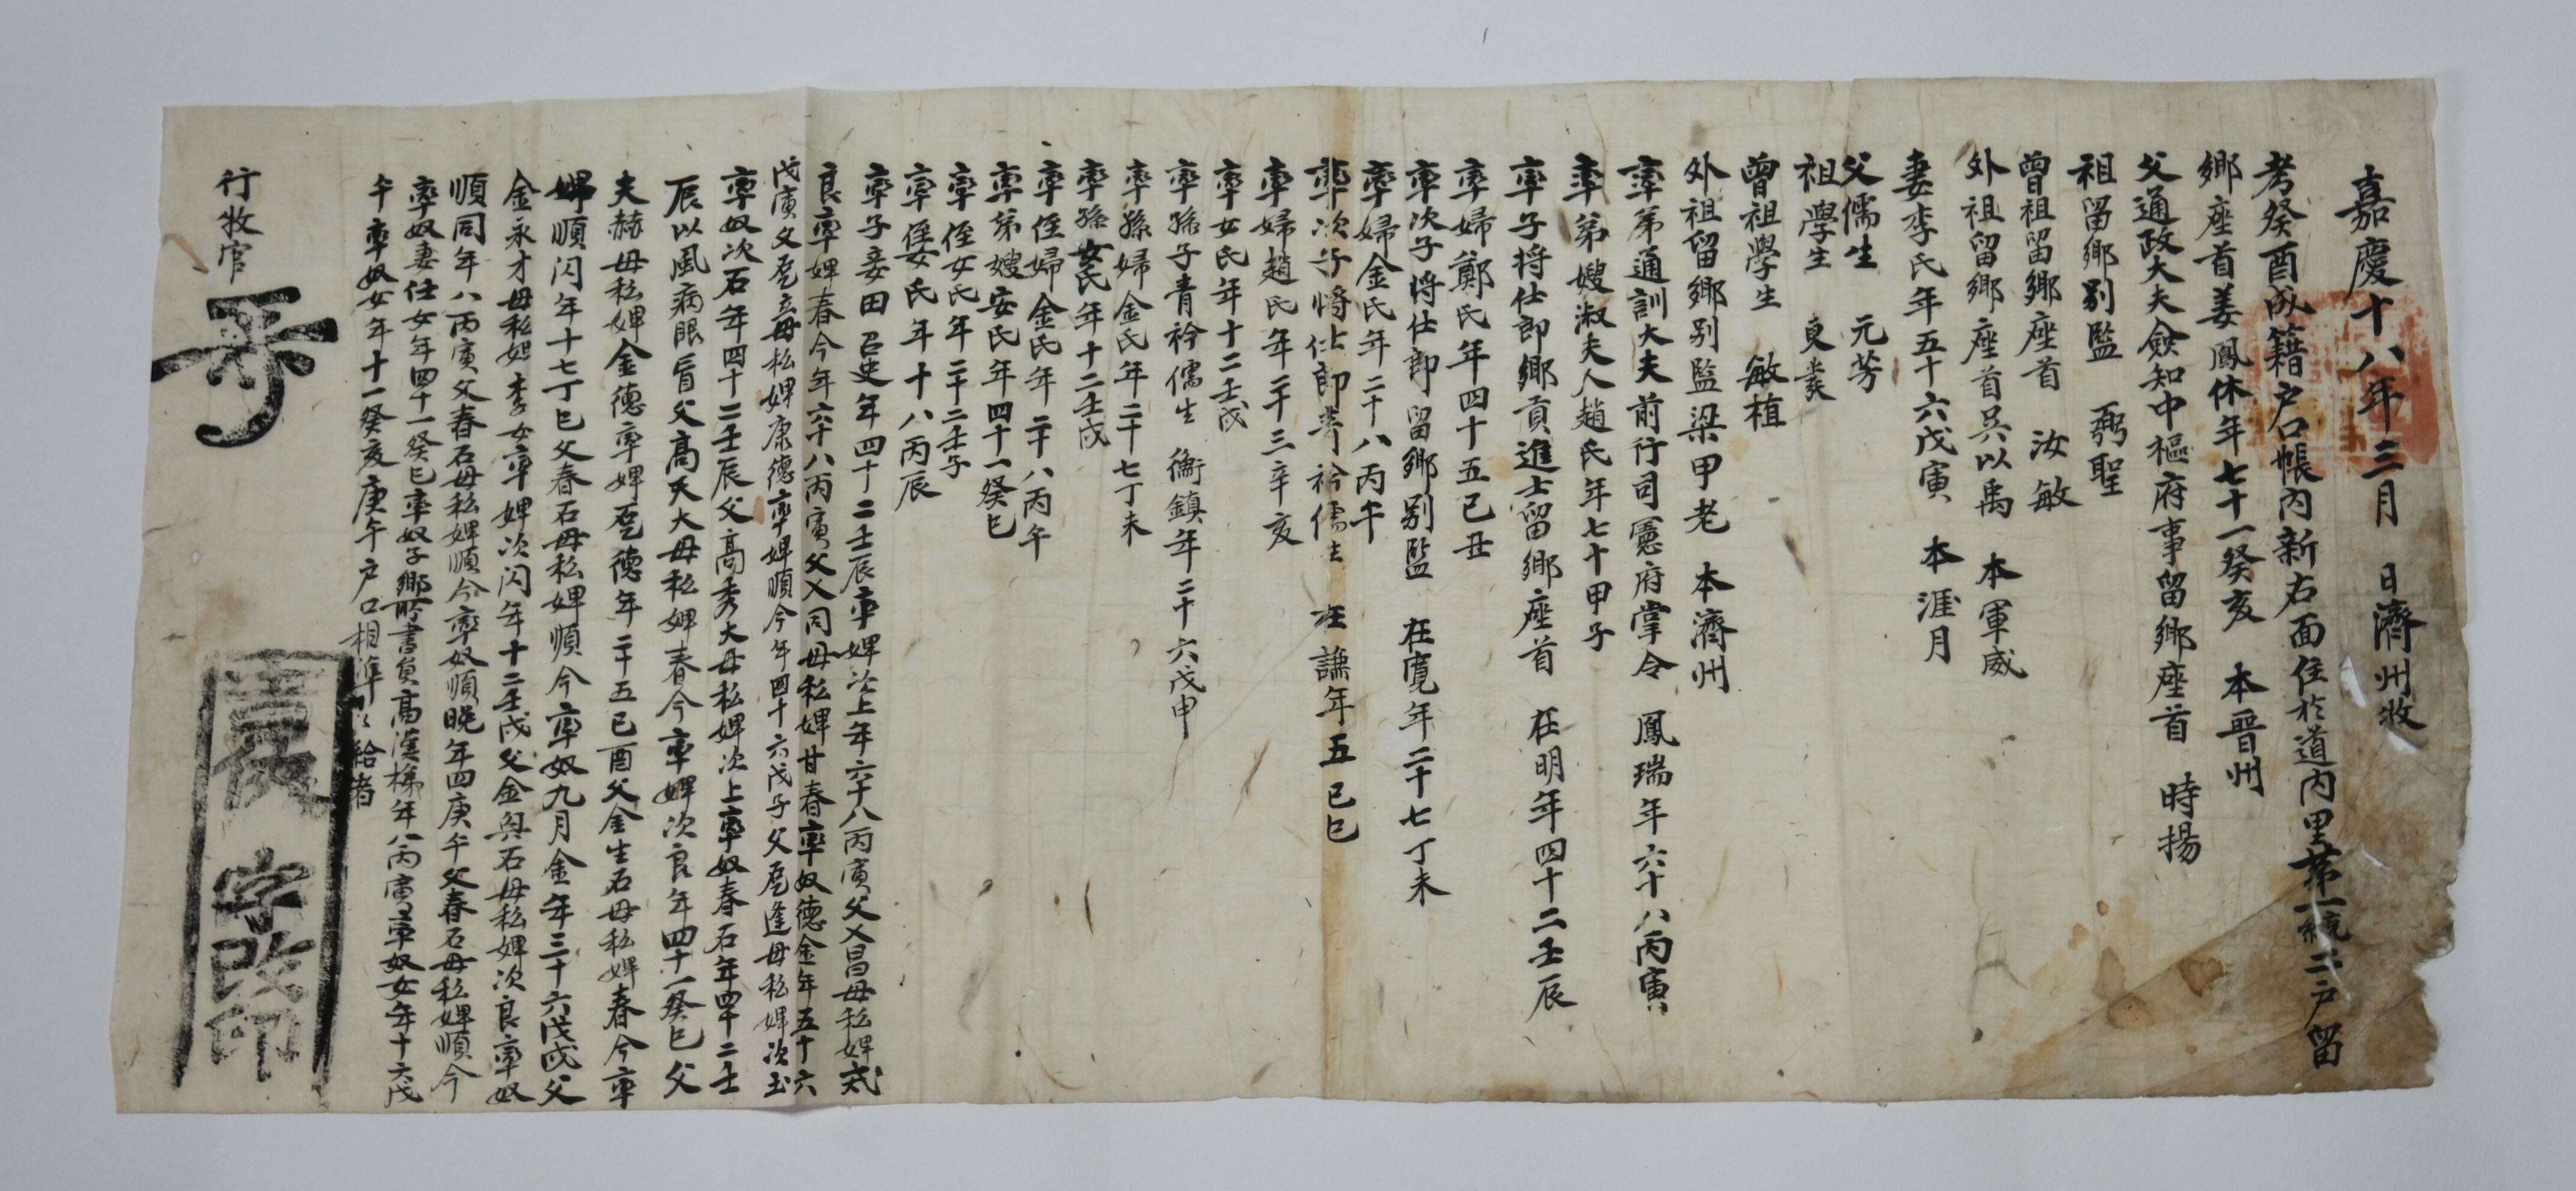 嘉慶十八年三月 日濟州牧
考癸酉成籍戶口帳內新右面住於道內里第一統二戶留
鄉座首姜鳳休年七十一癸亥 本晋州
父通政大夫僉知中樞府事留鄉座首 時揚
祖留鄉別監 弼聖
曾祖留鄉座首 汝敏
外祖留鄉座首吳以禹 本軍威
妻李氏年五十六戊寅 本涯月
父儒生 元芳
祖學生
曾祖學生 敏植
外祖留鄉別監梁甲老 本濟州
率弟通訓大夫前行司憲府掌令 鳳瑞年六十八丙寅
率弟嫂淑夫人趙氏年七十甲子
率子將仕郎鄉貢進士留鄉座首 在明年四十二壬辰
率婦鄭氏年四十五己丑
率次子將仕郎留鄉別監 在寬年二十七丁未
率婦金氏年二十八丙午
率次子將仕郎青衿儒生 在謙年五己巳
率婦趙氏年二十三辛亥
率女氏年十二壬戌
率孫子青衿儒生 衡鎮年二十六戊申
率孫婦金氏年二十七丁未
率孫女氏年十二壬戌
率侄婦金氏年二十八丙午
率弟嫂安氏年四十一癸巳
率侄女氏年二十二壬子
率侄女氏年十八丙辰
率子妾田召史年四十二壬辰率婢次上年六十八丙寅父乂昌母私婢弐
良率婢春今年六十八丙寅父乂同母私婢甘春率奴德金年五十六
戊寅父苊立母私婢康德率婢順今年四十六戊子父苊逢母私婢次玉
率奴次石年四十二壬辰父高秀大母私婢次上率奴春石年四十二壬
辰以風病眼盲父高大大母私婢春今率婢次良年四十一癸巳父
夫赫母私婢金德率婢苊德年二十五己酉父金生石母私婢春今率
婢順闪年十七丁巳父春石母私婢順今率奴九月金年三十六戊戌父
金永才母私婢李女率婢次闪年十二壬戌父金與石母私婢次良率奴
順同年八丙寅父春石母私婢順今率奴順晩年四庚午父春石母私婢順今
率奴妻仕女年四十一癸巳率奴子鄉所書員高漢梯年八丙寅率奴女年十六戊
午率奴女年十一癸亥庚午戶口相準印給者
行牧官
字改印